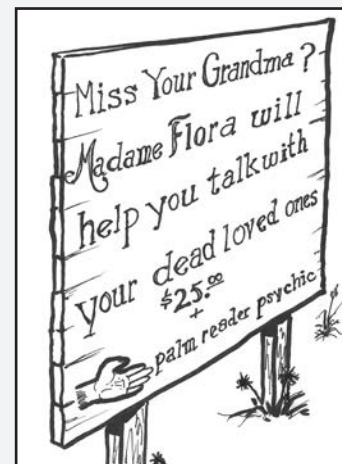 Miss Your Grandma?
Madame Flora will
help you talk with
your dead loved ones
$25.00
+
palm reader psychic